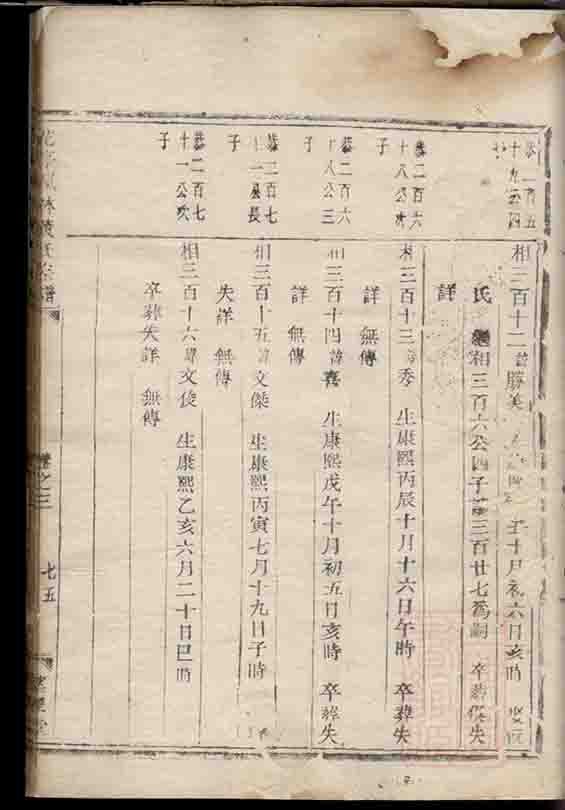 十九公四
相三百十二諱勝美 十月初六日亥時
氏 繼相三百六公四子 三百廿七為嗣 卒葬俱失
詳
恭二百六
十八公次
子
相三百十三諱秀 生康熙丙辰十月十六日午時 卒葬失
詳 無傳
恭二百六
十八公三
子
相三百十四諱喜 生康熙戊午十月初五日亥時 卒葬失
詳 無傳
恭二百七
十一公長
子
相三百十五諱文傑 生康熙丙寅七月十九日子時
失詳 無傳
恭二百七
十一公次
子
相三百十六諱文俊 生康熙乙亥六月二十日巳時
卒葬失詳 無傳
氏宗譜
卷之三
七五